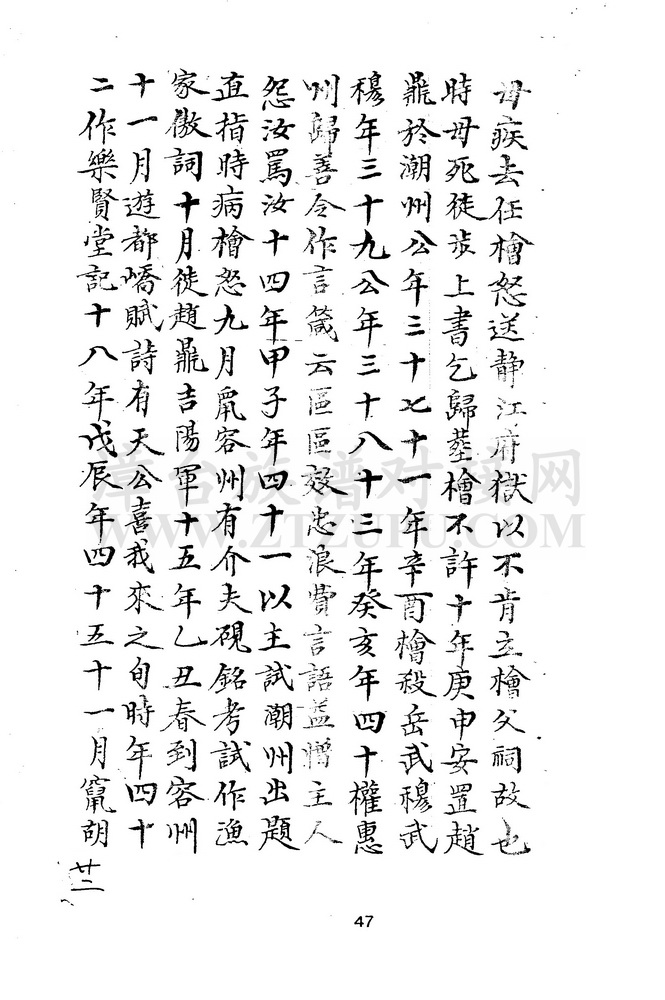 母疾去任檜怒送靜江府獄以不肯立檜父祠故也
時母死徒步上書乞歸塟檜不許十年庚申安置趙
鼎於潮州公年三十七十一年辛酉檜殺岳武穆武
穆年三十九公年三十八十三年癸亥年四十權惠
州歸善令作言箴云區區效忠浪費言語益憎主人
怨汝罵汝十四年甲子年四十一以主試潮州出題
直指時病檜怒九月竄容州有介夫硯銘考試作漁
家傲詞十月徙趙鼎吉陽軍十五年乙丑春到容州
十一月遊都嶠賦詩有天公喜我來之旬時年四十
二作樂賢堂記十八年戊辰年四十五十一月竄胡
廿二
47
岸台族谱对接网
WWW.ZTZUPU.COM